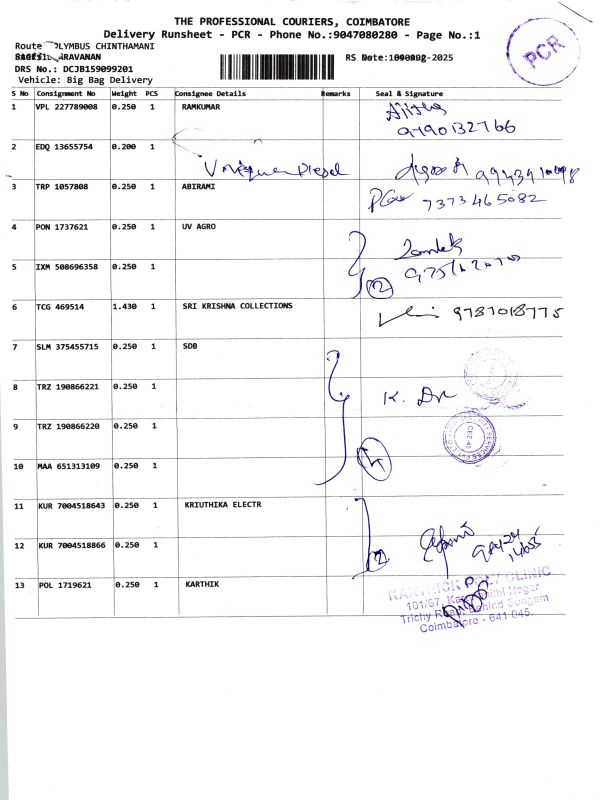 THE PROFESSIONAL COURIERS, COIMBATORE
Delivery Runsheet - PCR - Phone No.:9047080280 - Page No.:1
PCR
Route OLYMBUS CHINTHAMANI
SARAVANAN
RS Date: -2025
DRS No.: DCJB159099201
Vehicle: Big Bag Delivery
S No Consignment No Weight PCS Consignee Details Remarks Seal & Signature
1 VPL 227789008 0.250 1 RAMKUMAR
9790132766
2 EDQ 13655754 0.200 1 Unique Diesel
3 TRP 1057808 0.250 1 ABIRAMI 7373465082
4 PON 1737621 0.250 1 UV AGRO
5 IXM 508696358 0.250 1 2
6 TCG 469514 1.430 1 SRI KRISHNA COLLECTIONS 9787018775
7 SLM 375455715 0.250 1 SDB
8 TRZ 190866221 0.250 1 K.
9 TRZ 190866220 0.250 1
10 MAA 651313109 0.250 1 4
11 KUR 7004518643 0.250 1 KRIUTHIKA ELECTR
12 KUR 7004518866 0.250 1 2
13 POL 1719621 0.250 1 KARTHIK
KARTHICK POLY CLINIC
101/67, Nagar
Trichy Road, Behind Sungam
Coimbatore - 641 045.